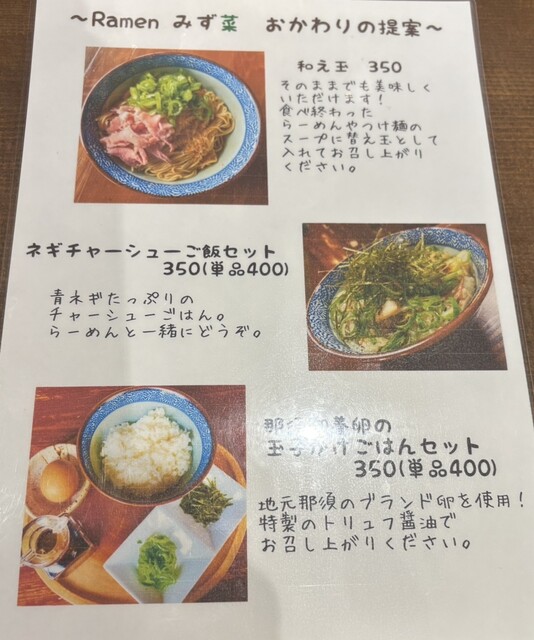 ～Ramen みず菜　おかわりの提案～
和え玉　350
そのままでも美味しく
いただけます！
食べ終わった
らーめんやつけ麺の
スープに替え玉として
入れてお召し上がり
ください。
ネギチャーシューご飯セット
350(単品400)
青ネギたっぷりの
チャーシューごはん。
らーめんと一緒にどうぞ。
那須御養卵の
玉子かけごはんセット
350(単品400)
地元那須のブランド卵を使用！
特製のトリュフ醤油で
お召し上がりください。